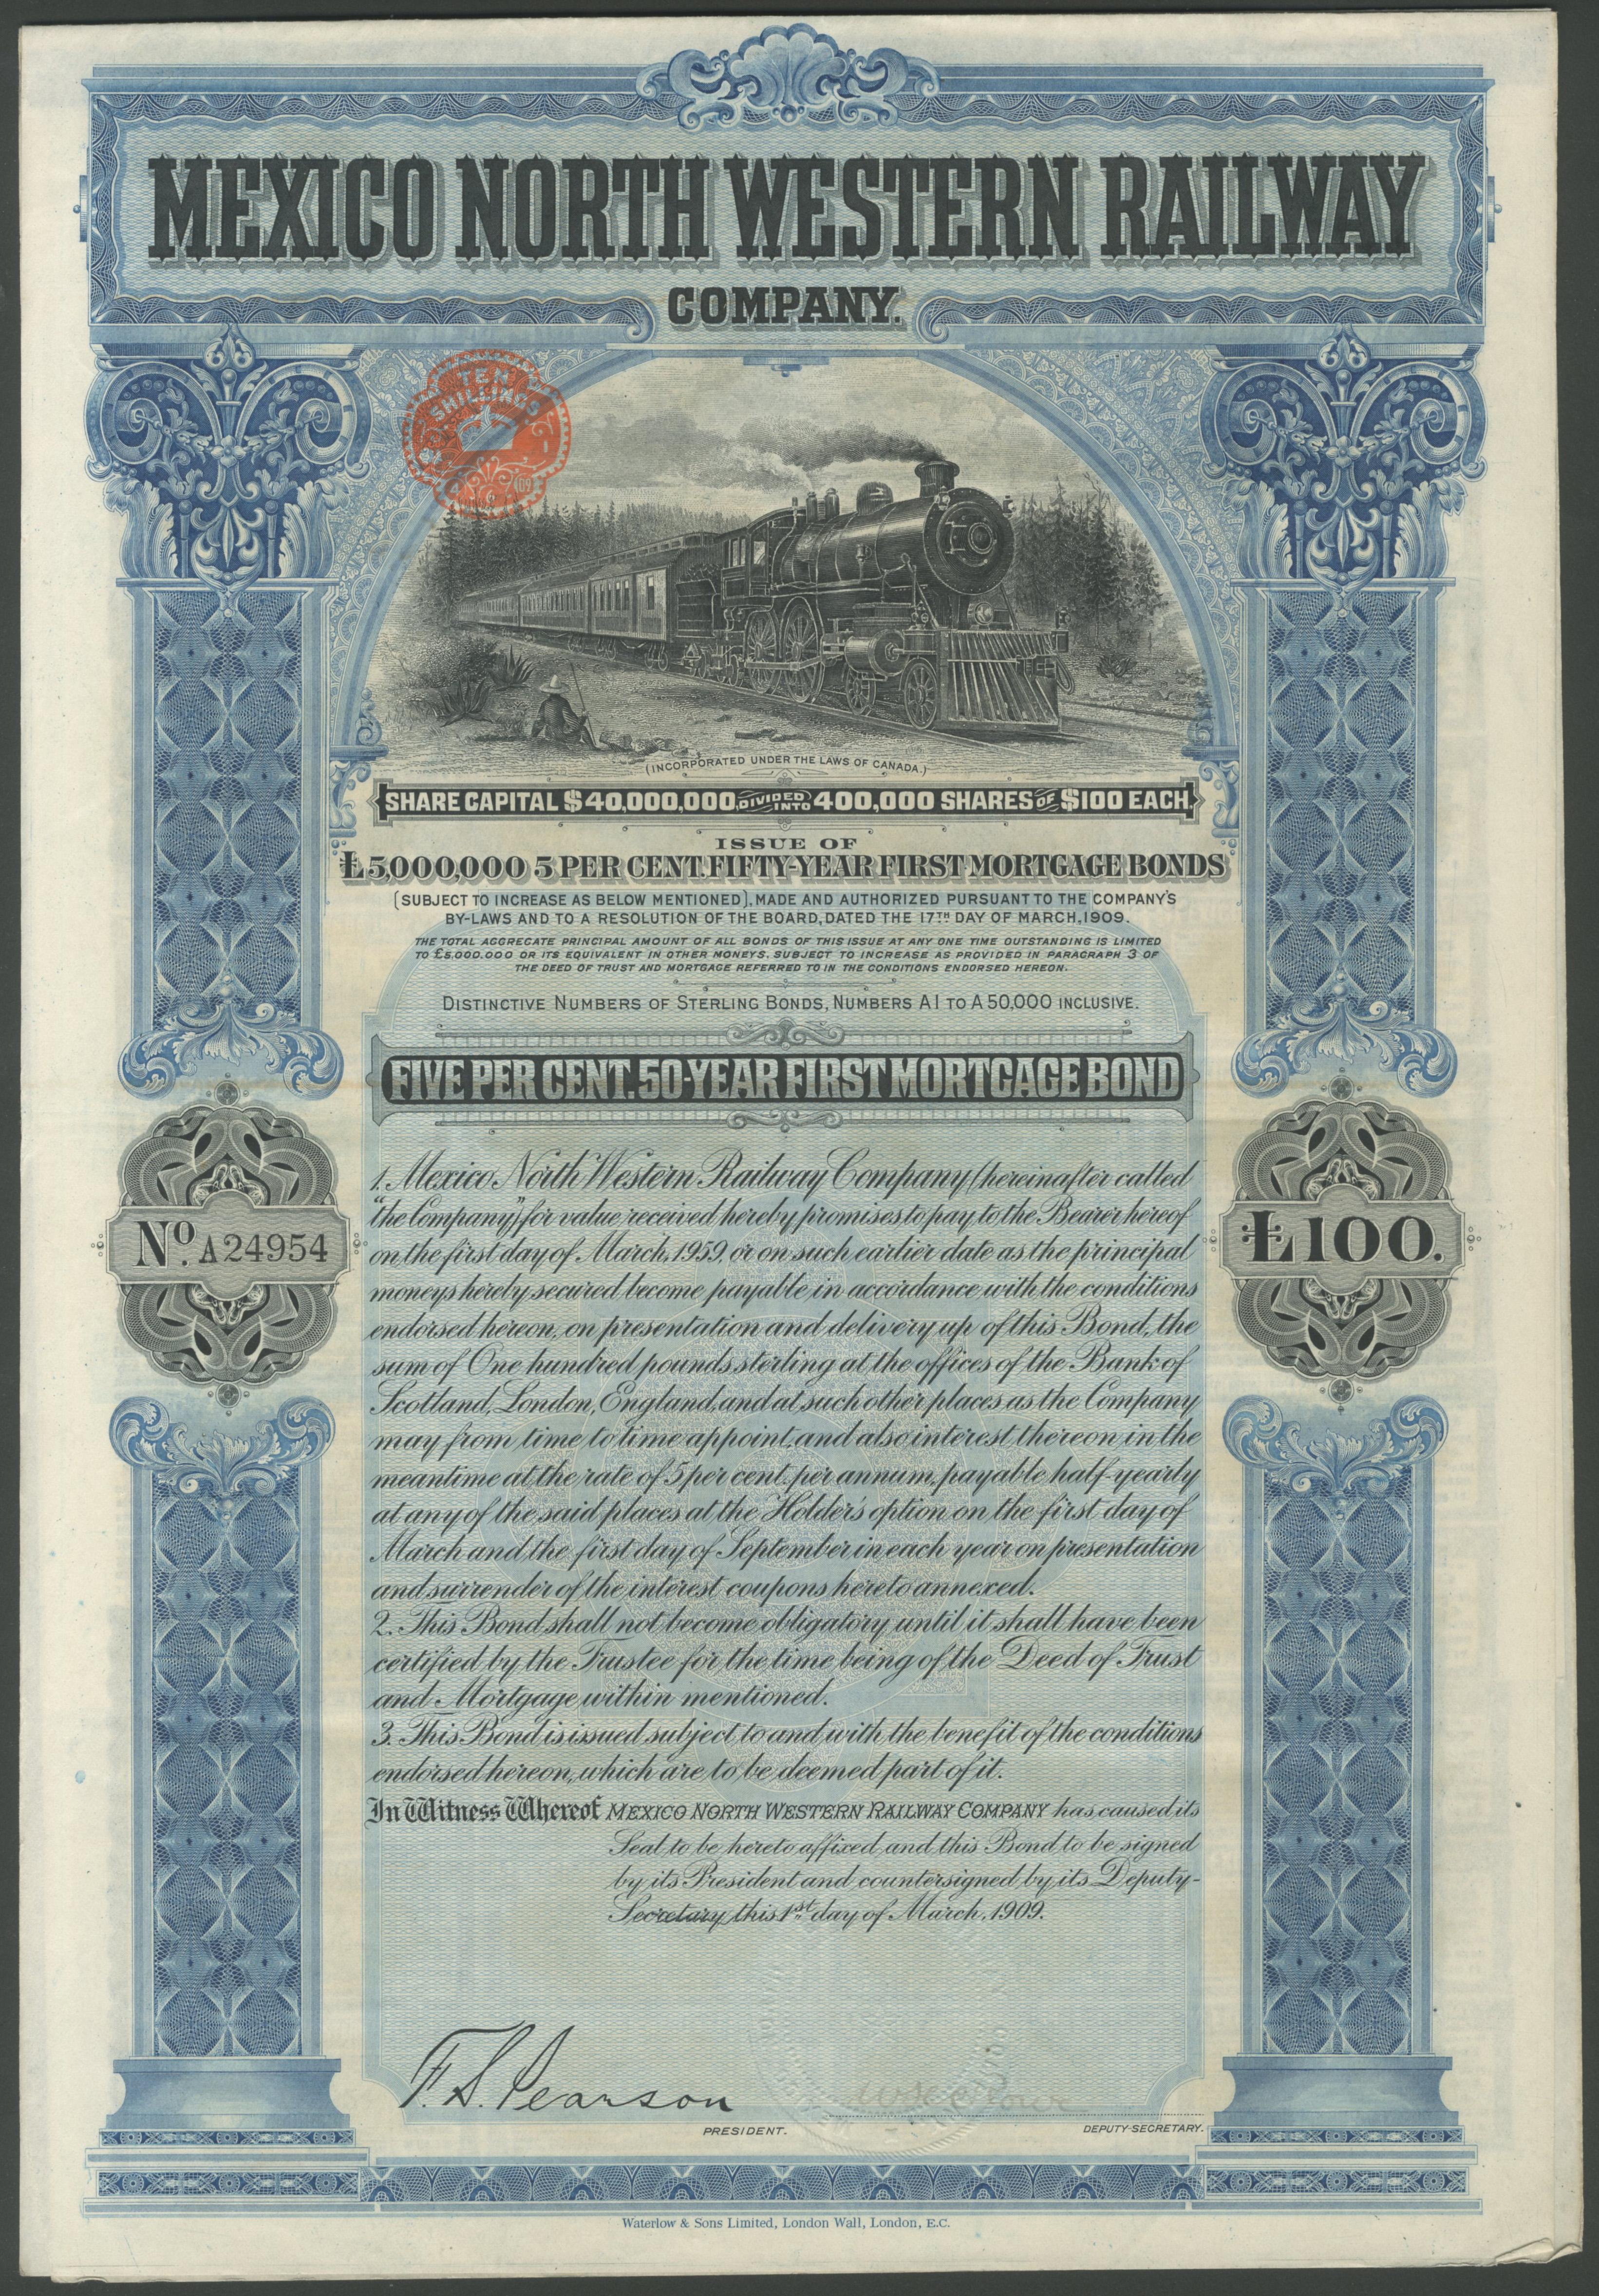 MEXICO NORTH WESTERN RAILWAY
COMPANY.
TEN
SHILLINGS
09
(INCORPORATED UNDER THE LAWS OF CANADA.)
SHARE CAPITAL $40,000,000 DIVIDED INTO 400,000 SHARES OF $100 EACH.
ISSUE OF
£5,000,000 5 PER CENT. FIFTY-YEAR FIRST MORTGAGE BONDS
(SUBJECT TO INCREASE AS BELOW MENTIONED), MADE AND AUTHORIZED PURSUANT TO THE COMPANY'S
BY-LAWS AND TO A RESOLUTION OF THE BOARD, DATED THE 17TH DAY OF MARCH, 1909.
THE TOTAL AGGREGATE PRINCIPAL AMOUNT OF ALL BONDS OF THIS ISSUE AT ANY ONE TIME OUTSTANDING IS LIMITED
TO £5,000,000 OR ITS EQUIVALENT IN OTHER MONEYS, SUBJECT TO INCREASE AS PROVIDED IN PARAGRAPH 3 OF
THE DEED OF TRUST AND MORTGAGE REFERRED TO IN THE CONDITIONS ENDORSED HEREON.
DISTINCTIVE NUMBERS OF STERLING BONDS, NUMBERS A1 TO A50,000 INCLUSIVE.
FIVE PER CENT. 50-YEAR FIRST MORTGAGE BOND
No. A24954
£100.
1. Mexico North Western Railway Company (hereinafter called
"the Company") for value received hereby promises to pay to the Bearer hereof
on the first day of March, 1959, or on such earlier date as the principal
moneys hereby secured become payable in accordance with the conditions
endorsed hereon, on presentation and delivery up of this Bond, the
sum of One hundred pounds sterling at the offices of the Bank of
Scotland, London, England, and at such other places as the Company
may from time to time appoint, and also interest thereon in the
meantime at the rate of 5 per cent. per annum, payable half-yearly
at any of the said places at the Holder's option on the first day of
March and the first day of September in each year on presentation
and surrender of the interest coupons hereto annexed.
2. This Bond shall not become obligatory until it shall have been
certified by the Trustee for the time being of the Deed of Trust
and Mortgage within mentioned.
3. This Bond is issued subject to and with the benefit of the conditions
endorsed hereon, which are to be deemed part of it.
In Witness Whereof MEXICO NORTH WESTERN RAILWAY COMPANY has caused its
Seal to be hereto affixed and this Bond to be signed
by its President and countersigned by its Deputy-
Secretary this 1st day of March, 1909.
F. S. Pearson
PRESIDENT.
DEPUTY-SECRETARY.
Waterlow & Sons Limited, London Wall, London, E.C.